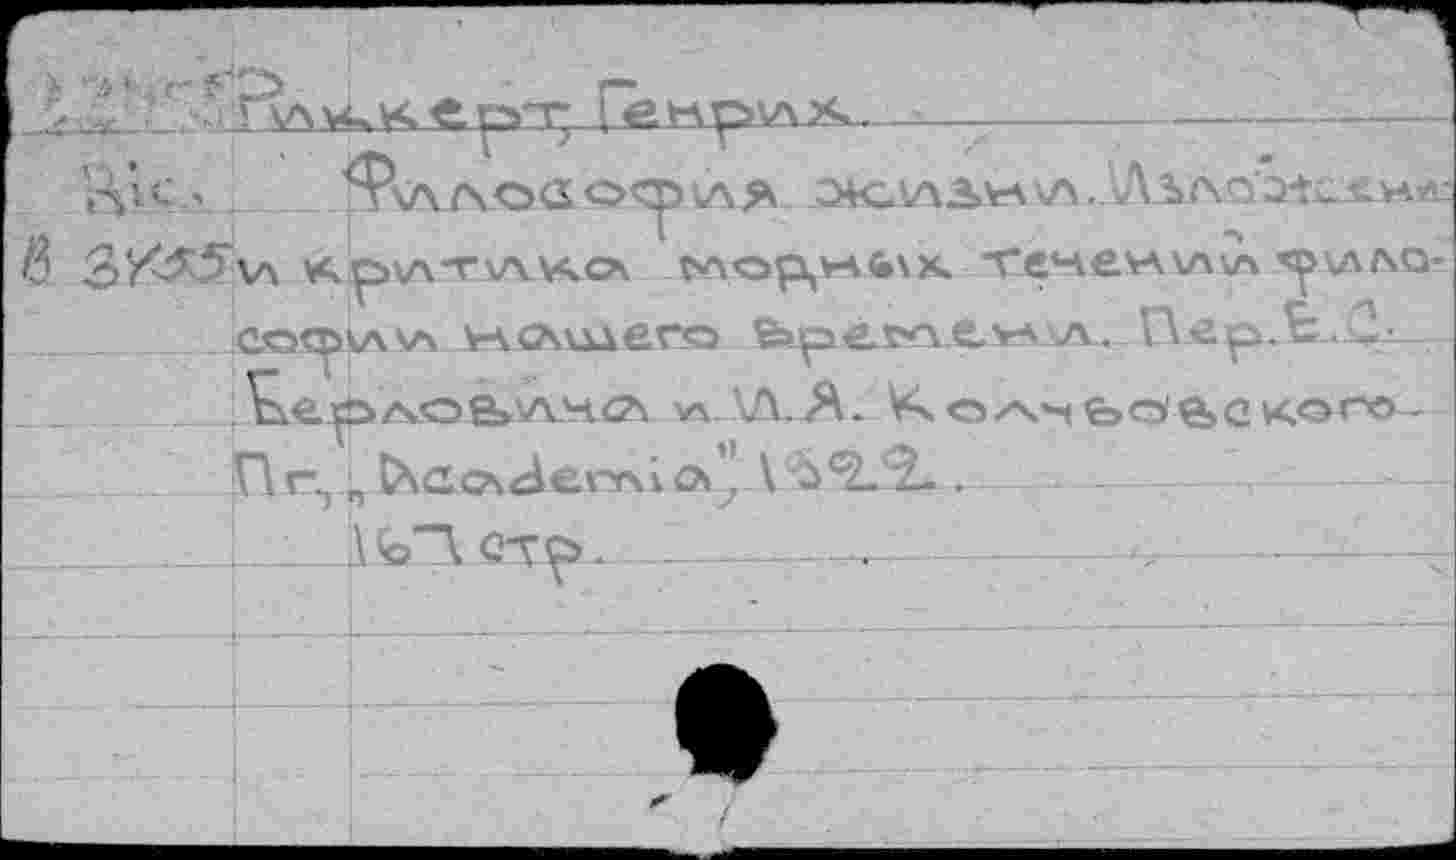 Риккерт, Генрих.
Філософія жизни. Изложени
В 3455 и критика модных течений фило-
софии нашего времени. Пер. Е.С.
Берловича и И.Я. Колчбовского-
Пг., „Academia", 1922.
167 стр.